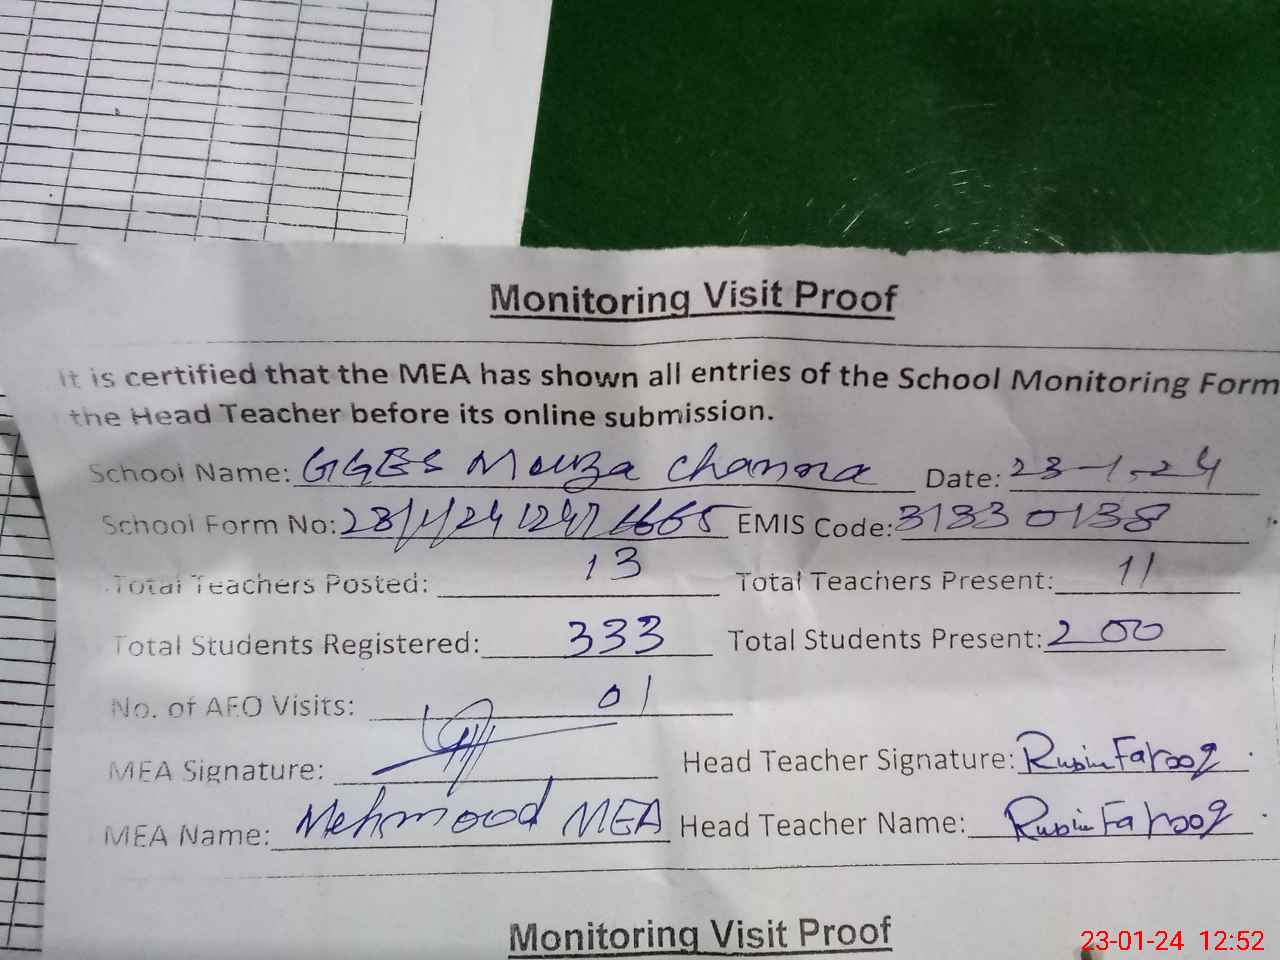 Monitoring Visit Proof
It is certified that the MEA has shown all entries of the School Monitoring Form
the Head Teacher before its online submission.
School Name: GGES Mouza Channa Date: 23-1-24
School Form No: 23/1/24 1247 6665 EMIS Code: 31330138
Total Teachers Posted: 13 Total Teachers Present: 11
Total Students Registered: 333 Total Students Present: 200
No. of AEO Visits: 01
MEA Signature: Head Teacher Signature: Rubin Farooq
MEA Name: Mehmood MEA Head Teacher Name: Rubin Farooq
Monitoring Visit Proof
23-01-24 12:52